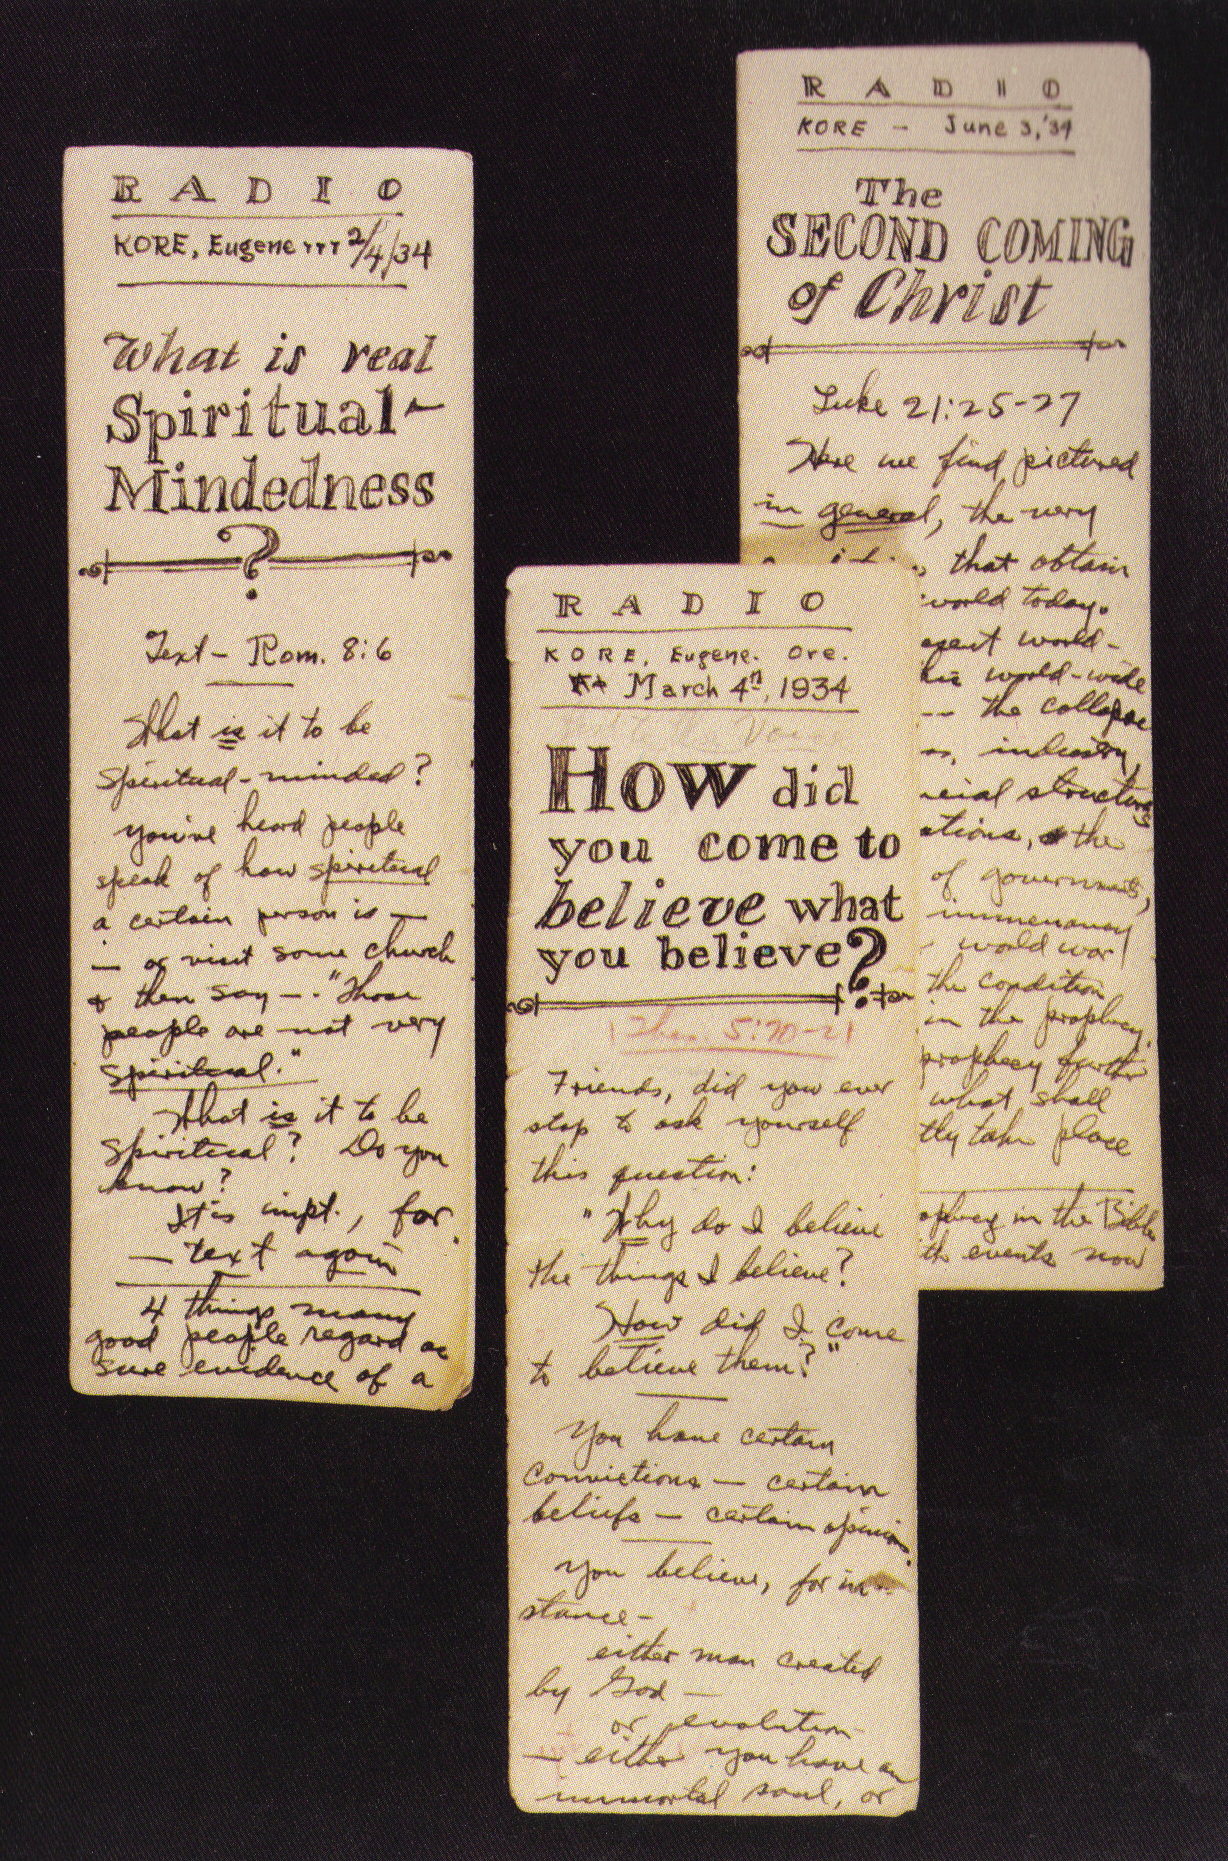 RADIO
KORE, Eugene 2/4/34
What is real
Spiritual-
Mindedness
?
Text - Rom. 8:6
What is it to be
spiritual-minded?
You've heard people
speak of how spiritual
a certain person is —
— or visit some church
& then say — "Those
people are not very
spiritual."
What is it to be
spiritual? Do you
know?
It's impt., for
— text again
4 things many
good people regard as
sure evidence of a
RADIO
KORE, Eugene. Ore.
March 4th, 1934
HOW did
you come to
believe what
you believe?
1 Thes. 5:20-21
Friends, did you ever
stop to ask yourself
this question:
"Why do I believe
the things I believe?
How did I come
to believe them?"
You have certain
convictions — certain
beliefs — certain opinions.
You believe, for in-
stance -
either man created
by God —
or evolution
— either you have an
immortal soul, or
RADIO
KORE - June 3, '34
The
SECOND COMING
of Christ
Luke 21:25-27
Here we find pictured
in general, the very
, that obtain
world today.
world-
world-wide
-- the collapse
, industry,
structures
, the
of governments,
world war
the condition
in the prophecy.
prophecy further
what shall
take place
in the Bible
events now